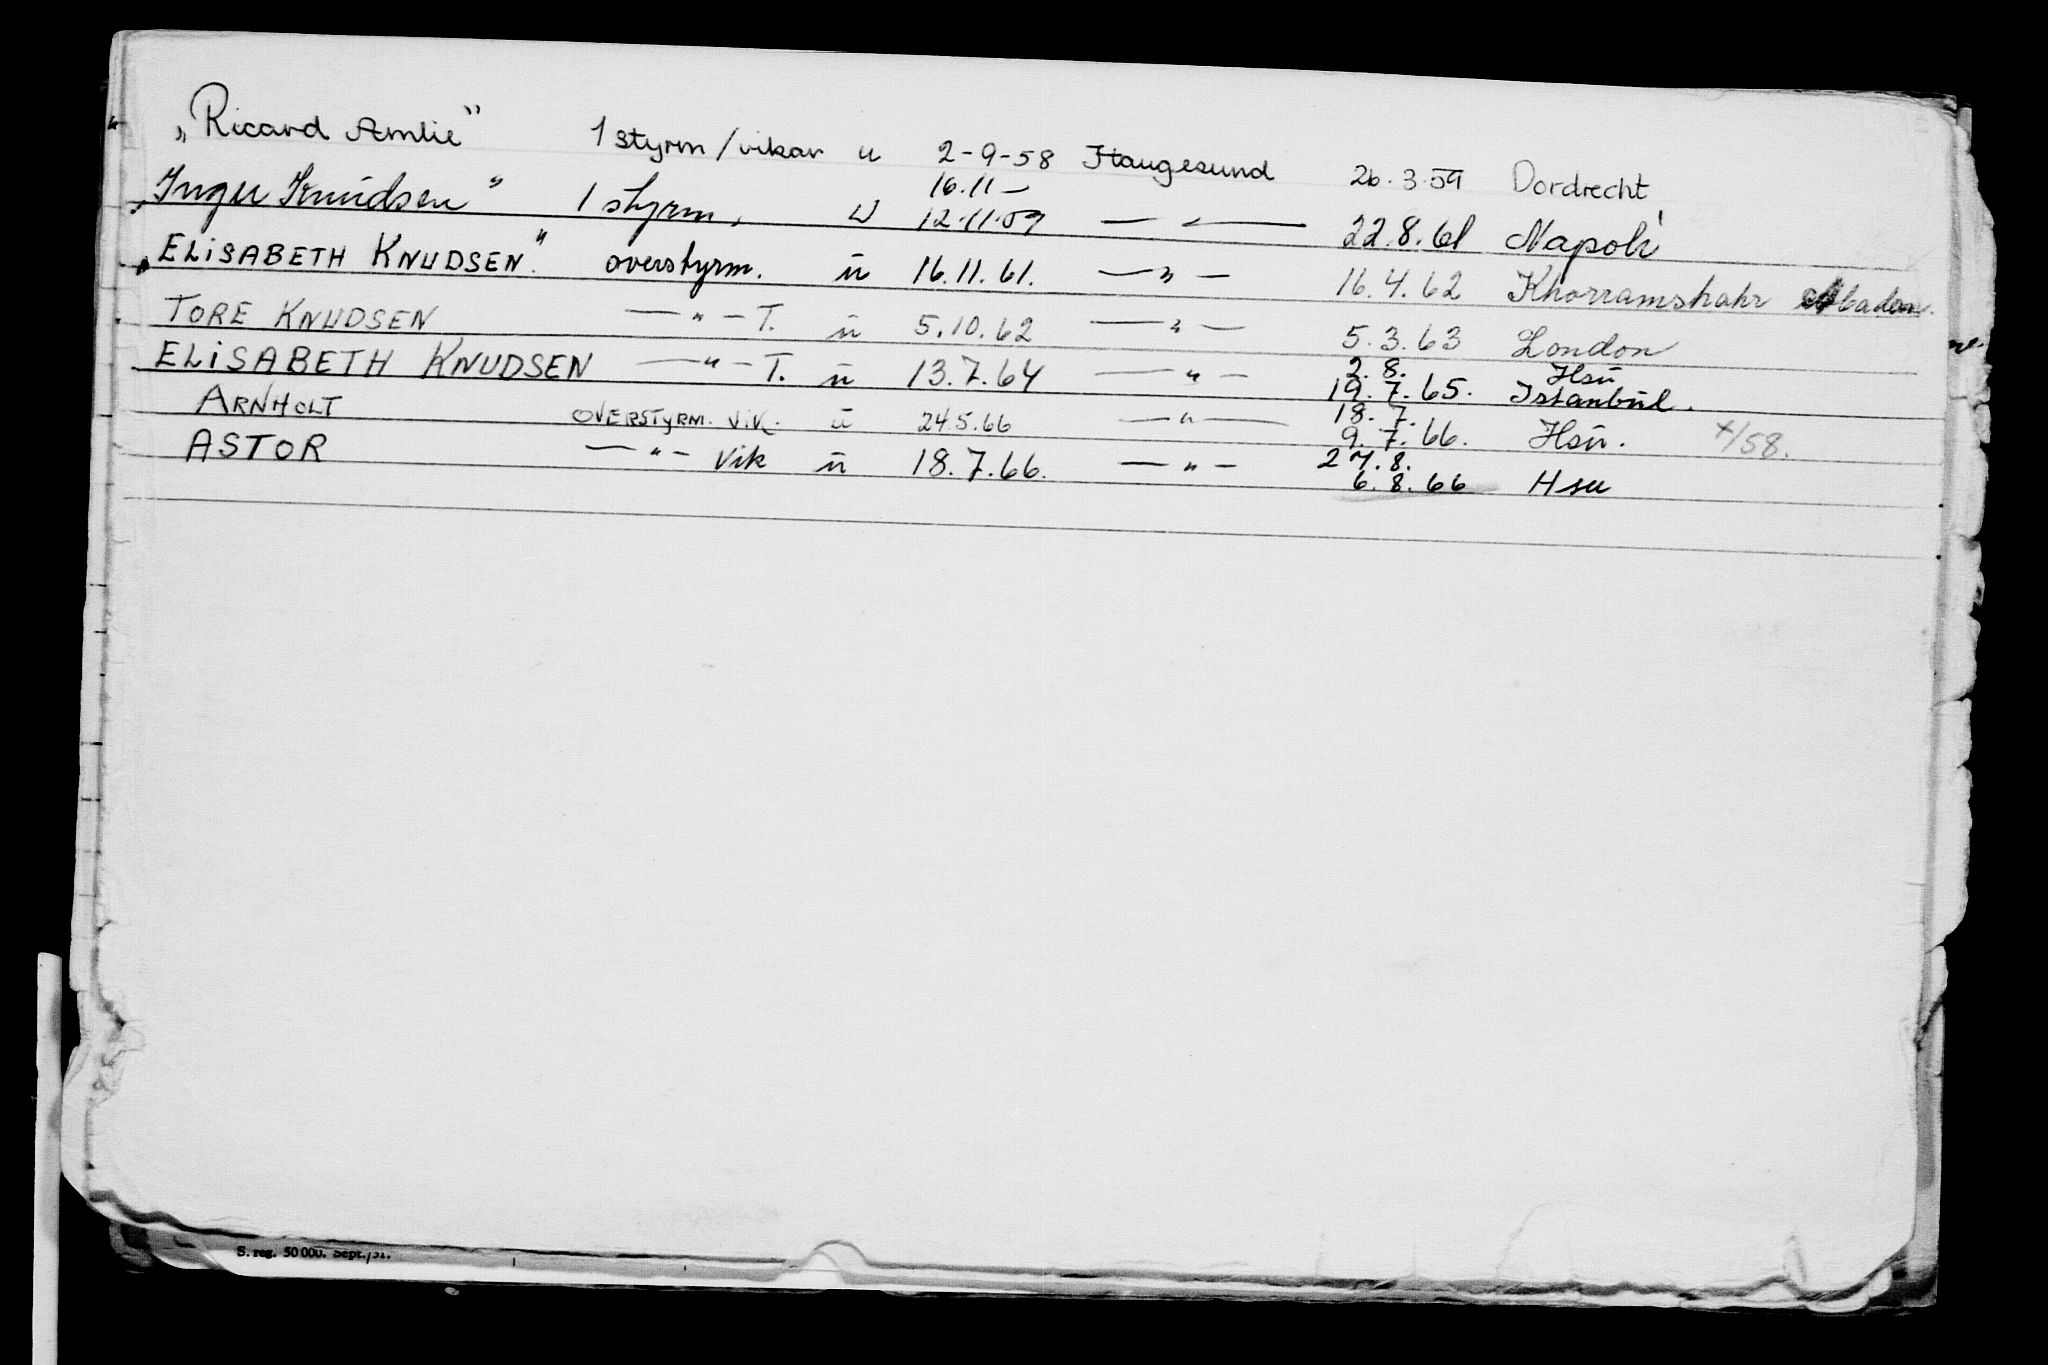 „Ricard Amlie" 1 styrm/vikar u 2-9-58 Haugesund 26.3.59 Dordrecht
16.11 —
„Inger Knudsen" 1 styrm. u 12.11.59 — " — 22.8.61 Napoli
„ELISABETH KNUDSEN." overstyrm. u 16.11.61. — " — 16.4.62 Khorramshahr Abadan.
TORE KNUDSEN — " — T. u 5.10.62 — " — 5.3.63 London
2.8. Hsu
ELISABETH KNUDSEN — " — T. u 13.7.64 — " — 19.7.65. Istanbul.
18.7.
ARNHOLT OVERSTYRM. VIK. u 24.5.66 — " — 9.7.66. Hsu. x/58.
27.8.
ASTOR — " — Vik u 18.7.66. — " — 6.8.66 Hsu
S. reg. 50 000. Sept.